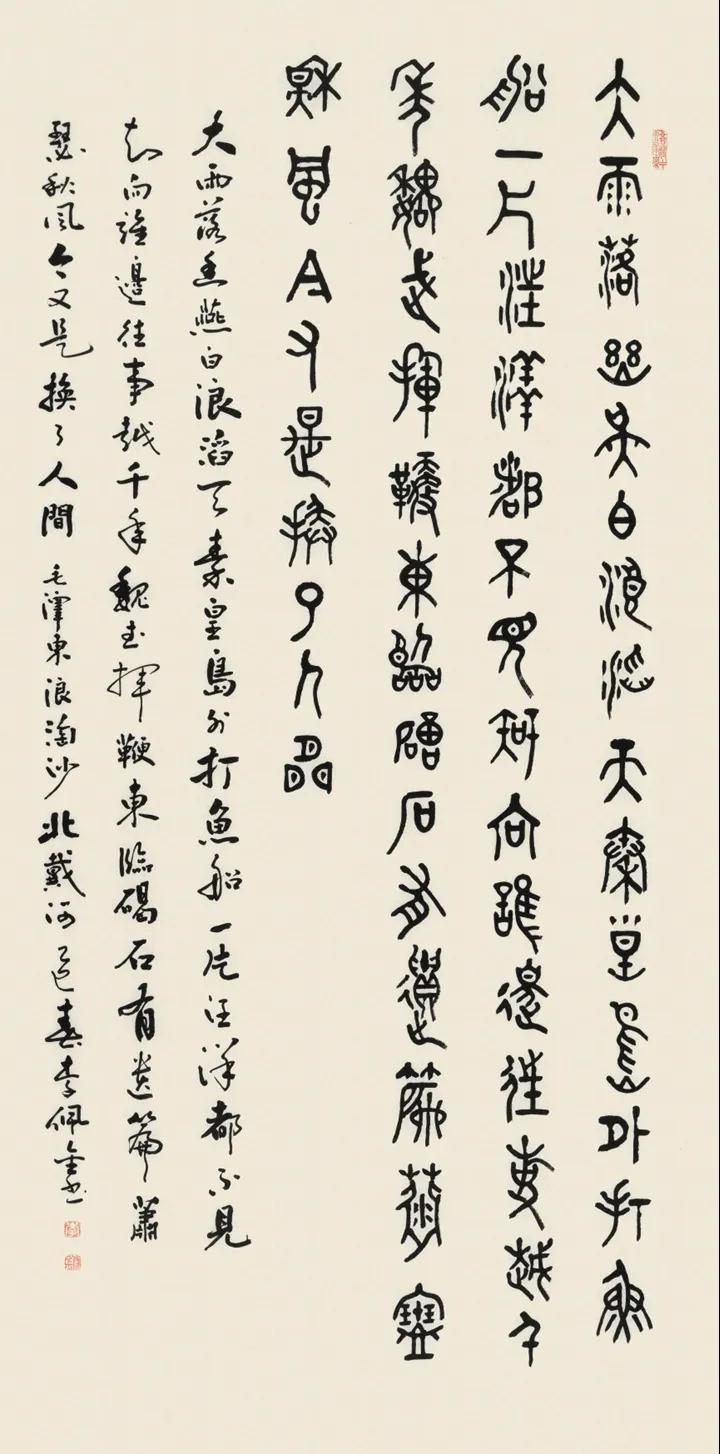 大雨落幽燕白浪滔天秦皇島外打魚
船一片汪洋都不見知向誰邊往事越千
年魏武揮鞭東臨碣石有遺篇蕭瑟
秋風今又是換了人間
大雨落幽燕白浪滔天秦皇島外打魚船一片汪洋都不見
知向誰邊往事越千年魏武揮鞭東臨碣石有遺篇蕭
瑟秋風今又是換了人間 毛澤東浪淘沙北戴河 乙巳春李佩金书